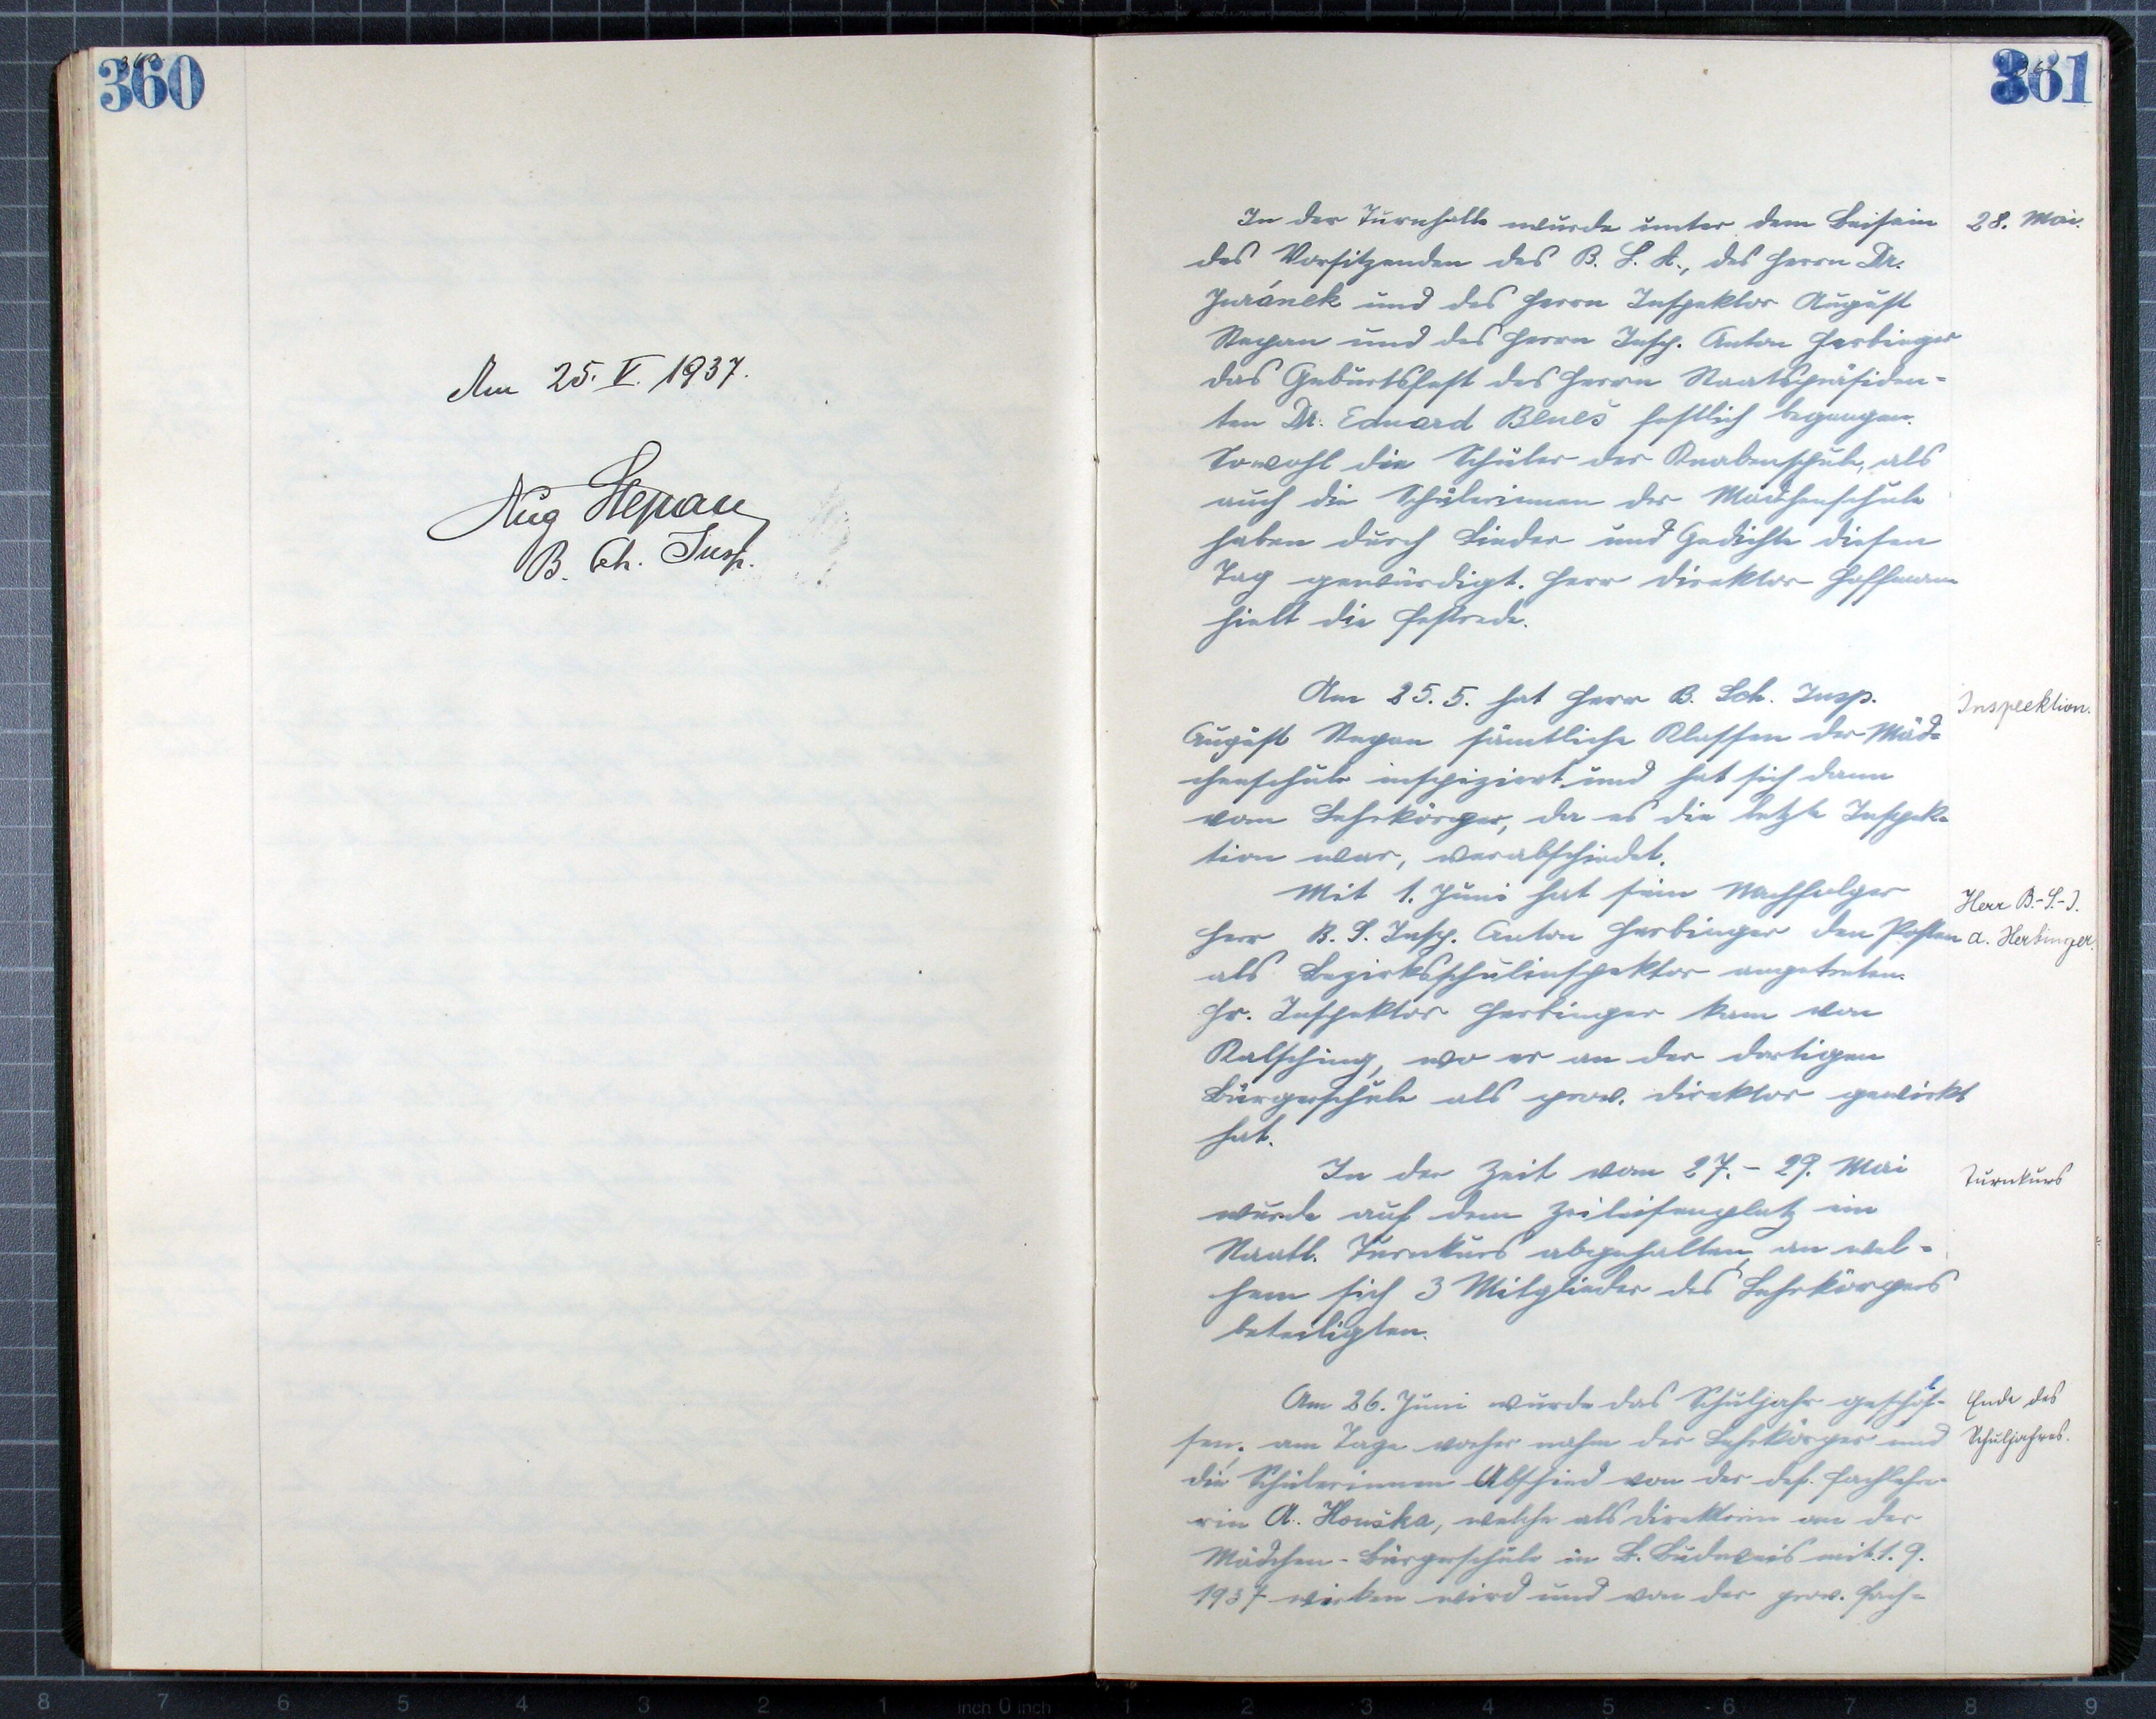 360
Am 25. V. 1937.
Aug Stepan
B. Sch. Insp.
361
In der Turnhalle wurde unter dem Beisein
28. Mai.
des Vorsitzenden des B. S. A., des Herrn Dr.
Juránek und des Herrn Inspektor August
Stepan und des Herrn Insp. Anton Herbinger
das Geburtsfest des Herrn Staatspräsiden-
ten Dr. Eduard Beneš festlich begangen.
Sowohl die Schüler der Knabenschule, als
auch die Schülerinnen der Mädchenschule
haben durch Lieder und Gedichte diesen
Tag gewürdigt. Herr Direktor Hoffmann
hielt die Festrede.
Am 25. 5. hat Herr B. Sch. Insp.
Inspektion.
August Stepan sämtliche Klassen der Mäd-
chenschule inspiziert und hat sich dann
vom Lehrkörper, da es die letzte Inspek-
tion war, verabschiedet.
Mit 1. Juni hat sein Nachfolger
Herr B.-S.-I.
Herr B. S. Insp. Anton Herbinger den Posten
A. Herbinger.
als Bezirksschulinspektor angetreten.
Hr. Inspektor Herbinger kam von
Kalsching, wo er an der dortigen
Bürgerschule als prov. Direktor gewirkt
hat.
In der Zeit vom 27. - 29. Mai
Turnkurs
wurde auf dem Zeileisenplatz ein
staatl. Turnkurs abgehalten, an wel-
chem sich 3 Mitglieder des Lehrkörpers
beteiligten.
Am 26. Juni wurde das Schuljahr geschlos-
Ende des
sen, am Tage vorher nahm der Lehrkörper und
Schuljahres.
die Schülerinnen Abschied von der def. Fachlehre-
rin A. Houška, welche als Direktorin an der
Mädchen-Bürgerschule in B. Budweis mit 1. 9.
1937 wirken wird und von der prov. Fach-